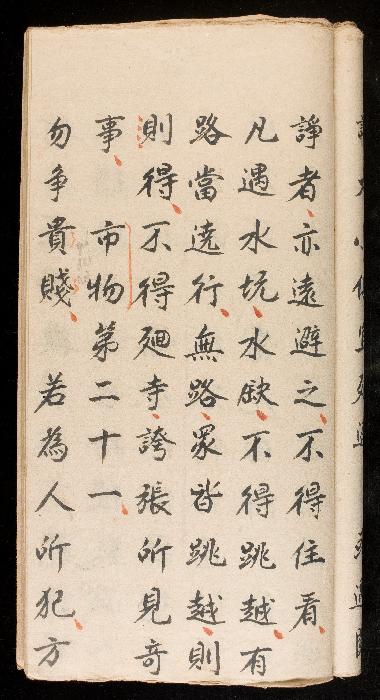 諍者亦遠避之不得住看
凡遇水坑水缺不得跳越有
路當遶行無路眾皆跳越則
則得不得廻寺誇張所見奇
事 市物第二十一
勿爭貴賤 若為人所犯方